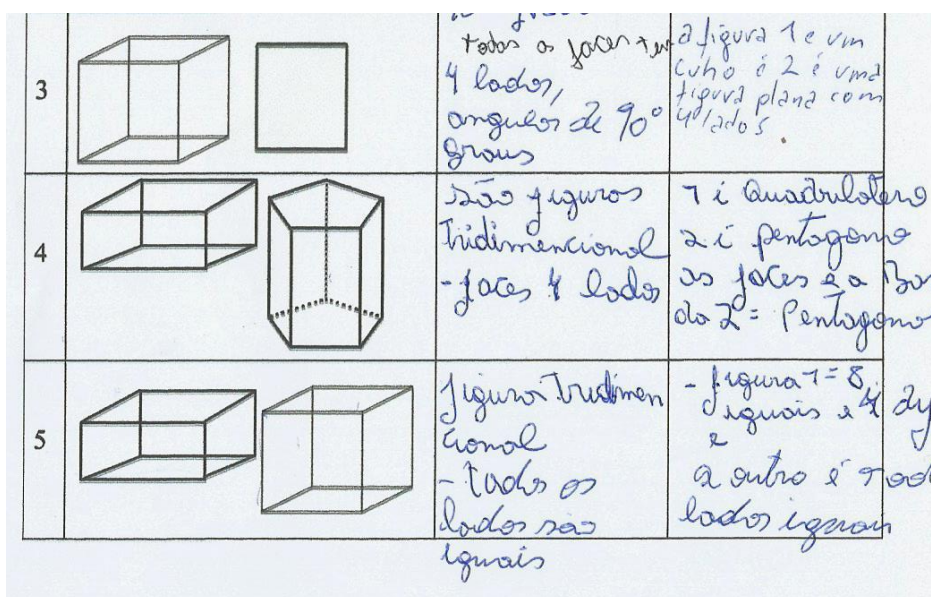 3
todas as faces tem
4 lados,
angulos de 90°
graus
a figura 1 e um
cubo e 2 é uma
figura plana com
4 lados.
4
são figuras
Tridimencional
- faces 4 lados
1 é Quadrilatero
2 é pentagono
as faces e a
da 2 = Pentagono
5
figuras Tridimen
cional
- todos os
lados são
iguais
- figura 1 = 8
iguais e 4
e
a outro é
lados iguais